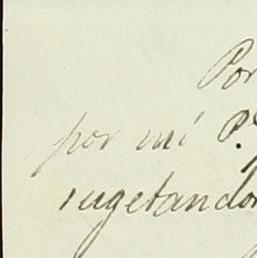 Por
por mi P.
sugetandos